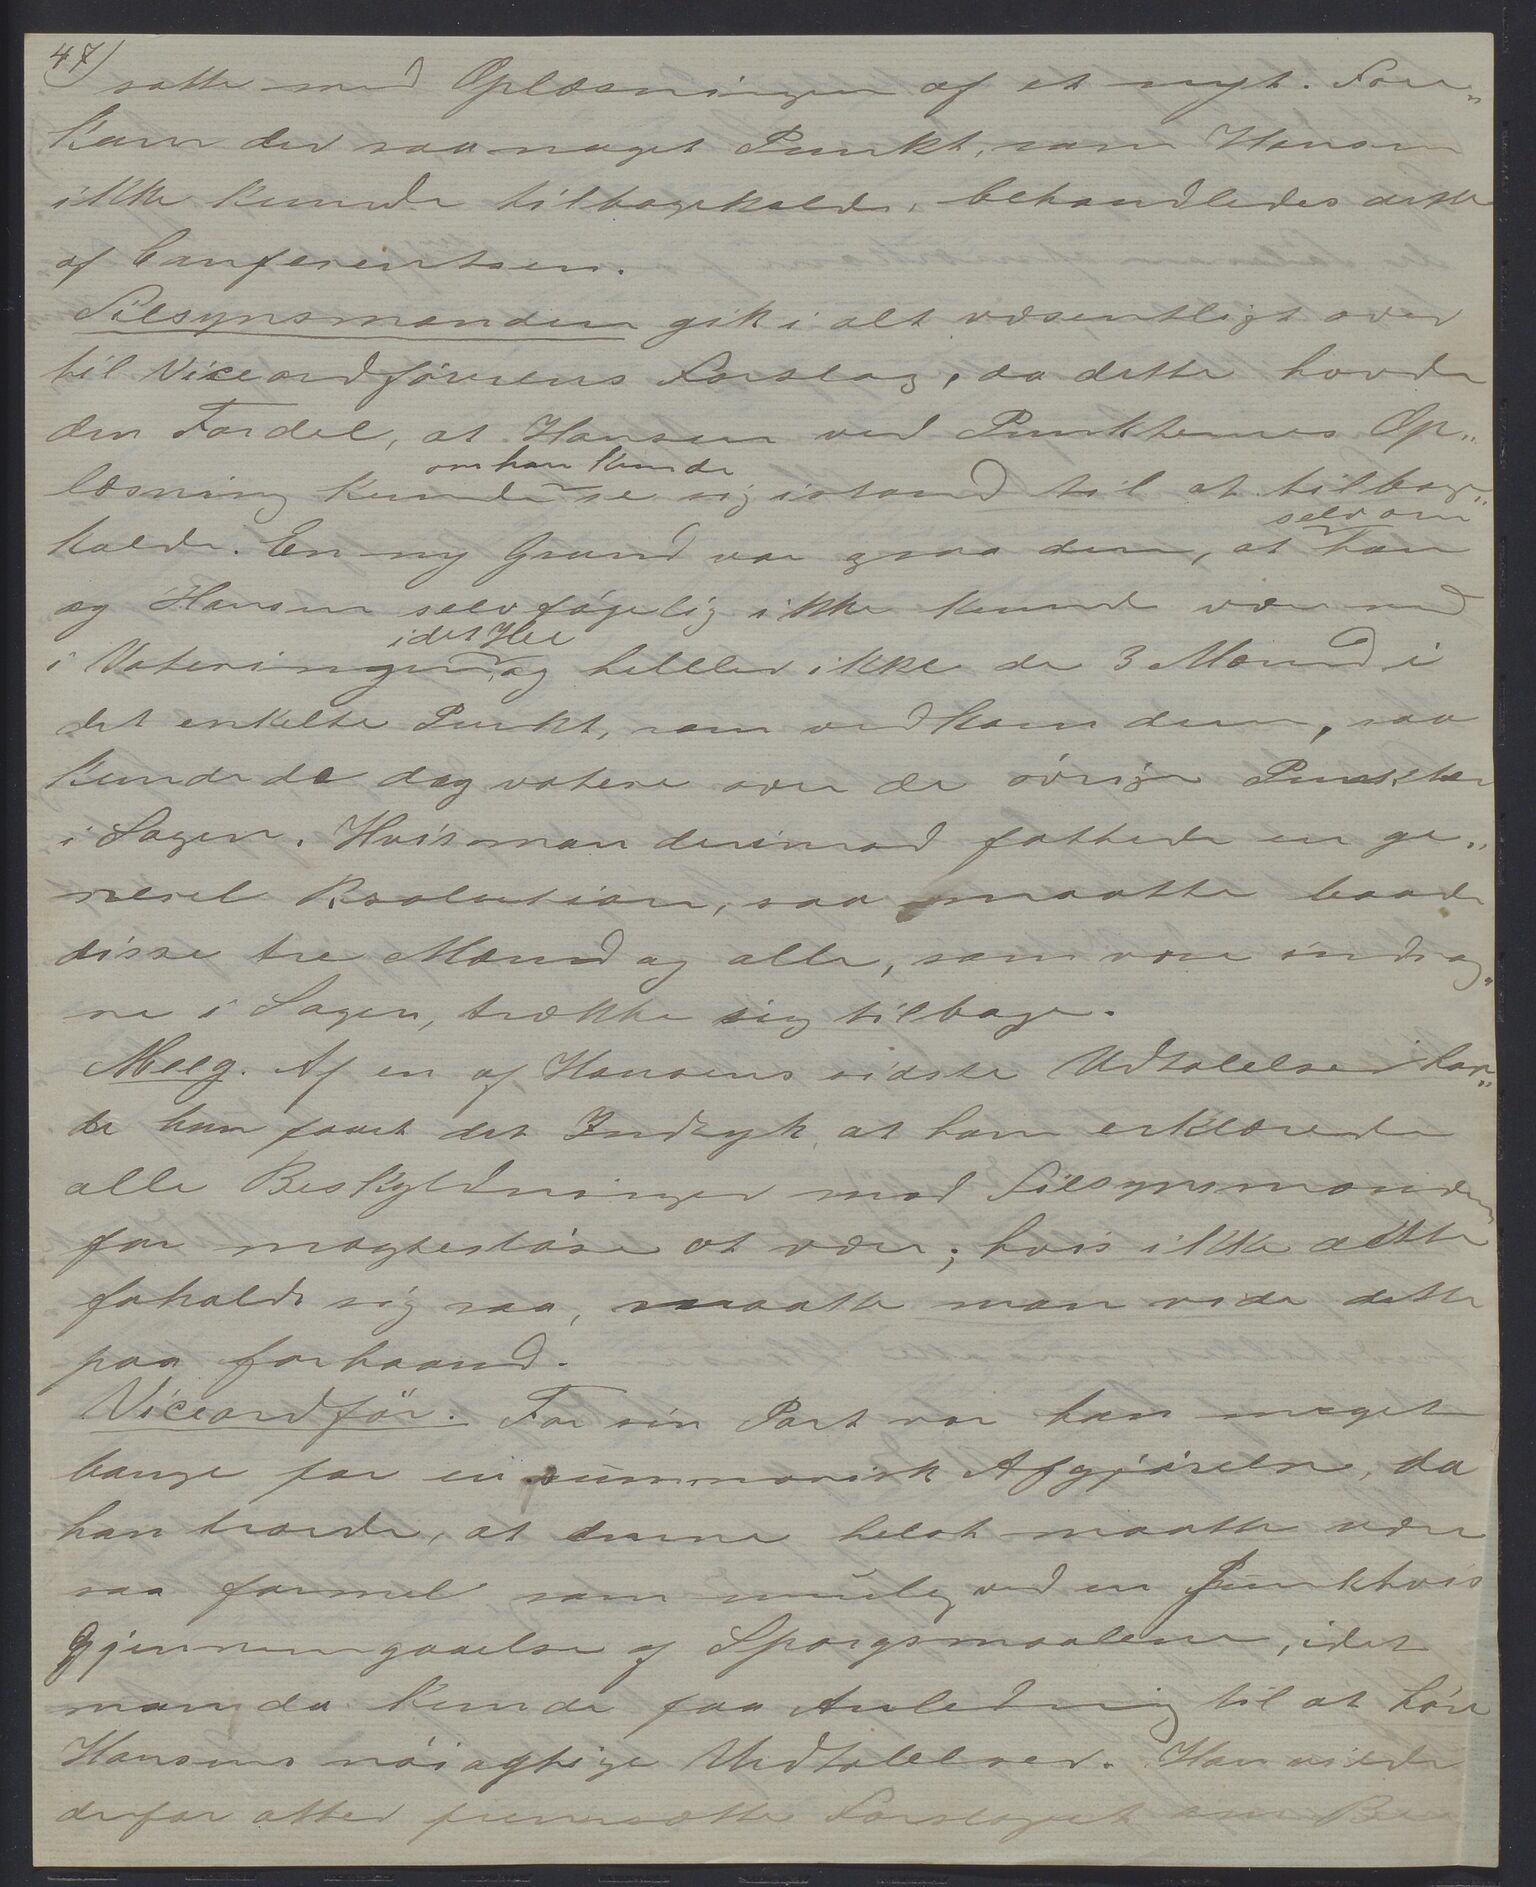 47)
satte med Oplæsningen af et nyt. Fore„
kom der saa noget Punkt, som Hansen
ikke kunde tilbagekalde, behandledes dette
af Conferentsen.
Tilsynsmanden gik i alt væsentligt over
til Viceordførerens Forslag, da dette havde
den Fordel, at Hansen ved Punkternes Op„
om han kunde
læsning kunde se sig istand til at tilbage„
selv om
kalde. En ny Grund var ogsaa den, at han
og Hansen selvføgelig ikke kunde være med
i det Hele
i Voteringen, og heller ikke de 3 Mænd i
det enkelte Punkt, som vedkom dem, saa
kunde de dog votere over de øvrige Punkter
i Sagen. Hvis man derimod fattede en ge„
nerel Resolution, saa maatte baade
disse tre Mænd og alle, som vare inddrag„
ne i Sagen, trække sig tilbage.
Meeg. Af en af Hansens sidste Udtalelser hav„
de han faaet det Indtryk, at han erklærede
alle Beskyldninger mod Tilsynsmanden
for magtesløse at være; hvis ikke dette
foholdt sig saa, maatte man vide dette
paa forhaand.
Viceordför. For sin Part var han meget
bange for en summarisk Afgjørelse, da
han troede, at denne helst maatte være
saa formel som mulig ved en Punktvis
Gjennemgaaelse af Spørgsmaalene, idet
man da kunde faa Anledning til at høre
Hansens nöiagtige Udtalelser. Han vilde
derfor atter fremsætte Forslaget om Be